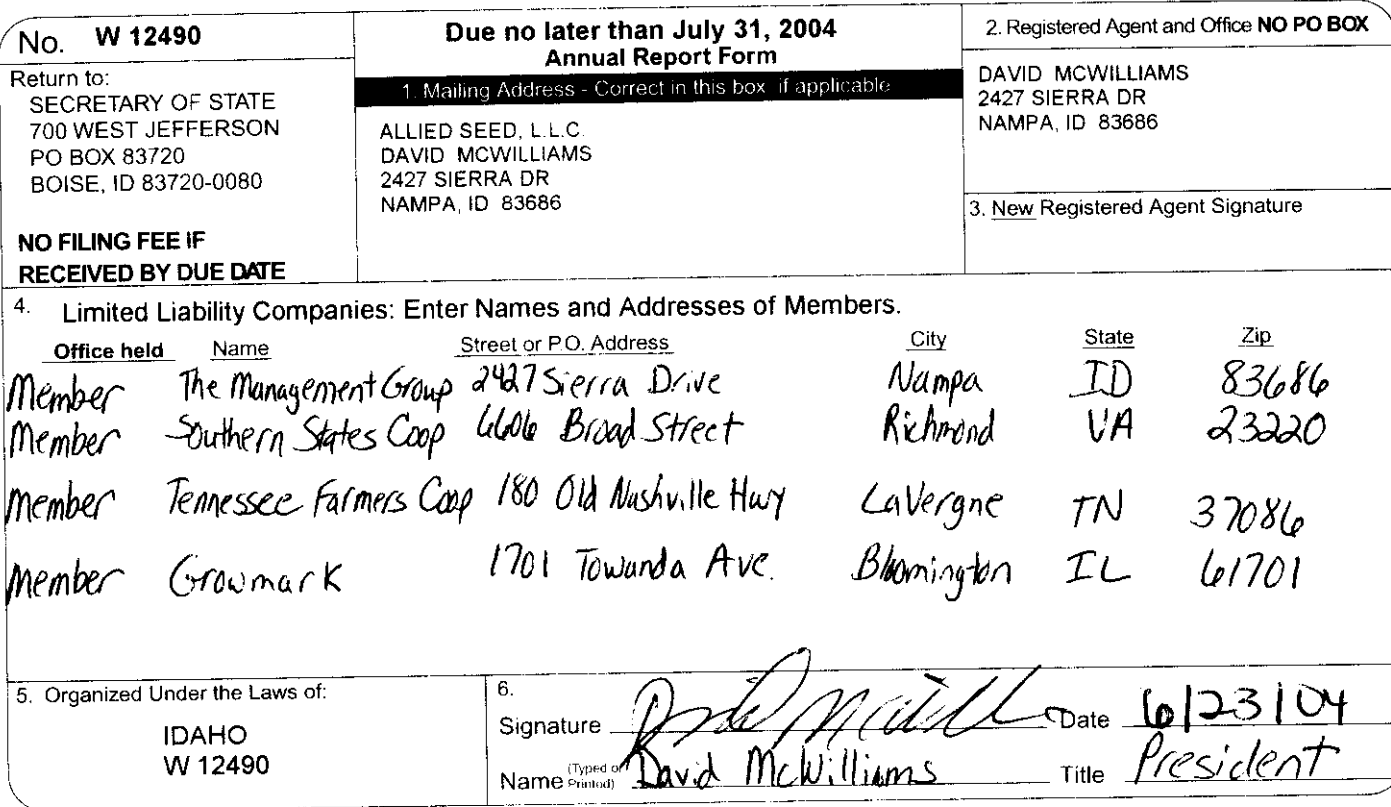 No. W 12490
Return to:
SECRETARY OF STATE
700 WEST JEFFERSON
PO BOX 83720
BOISE, ID 83720-0080
NO FILING FEE IF
RECEIVED BY DUE DATE
Due no later than July 31, 2004
Annual Report Form
1. Mailing Address - Correct in this box if applicable
ALLIED SEED, L.L.C.
DAVID MCWILLIAMS
2427 SIERRA DR
NAMPA, ID 83686
2. Registered Agent and Office NO PO BOX
DAVID MCWILLIAMS
2427 SIERRA DR
NAMPA, ID 83686
3. New Registered Agent Signature
4. Limited Liability Companies: Enter Names and Addresses of Members.
Office held Name Street or P.O. Address City State Zip
Member The Management Group 2427 Sierra Drive Nampa ID 83686
Member Southern States Coop 6606 Broad Street Richmond VA 23220
Member Tennessee Farmers Coop 180 Old Nashville Hwy LaVergne TN 37086
Member Growmark 1701 Towanda Ave. Bloomington IL 61701
5. Organized Under the Laws of:
IDAHO
W 12490
6.
Signature David McWill Date 6/23/04
Name (Typed or Printed) David McWilliams Title President